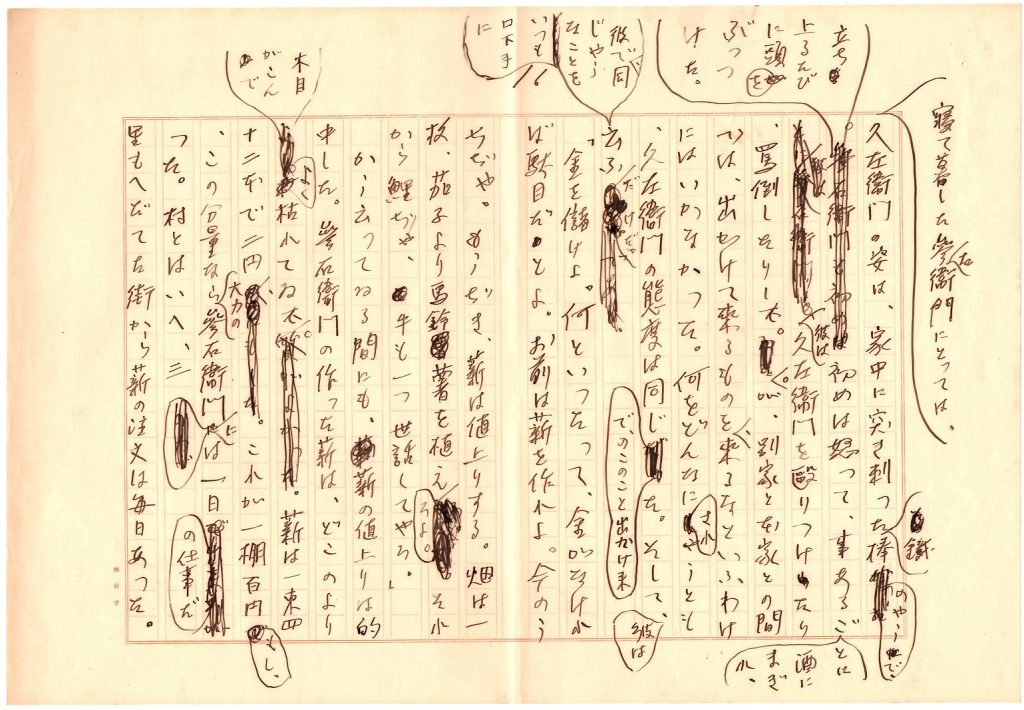 寝て暮した參右衛門にとつては、
久左衛門の姿は、家中に突き刺つた棒
鐵
のやうで、
立ち
上るたび
に頭を
ぶつつ
けた。
初めは怒つて、事あるごとに
酒に
まぎ
れ、
彼は
久左衛門を毆りつけたり
、罵倒したりした。が、別家と本家との間
では、出かけて来るものを来るなといふわけ
にはいかなかつた。何をどんなにされやうとも
、久左衛門の態度は同じだつた。そして、
彼は
で, のこのこと出かけて来
彼で同
じやう
なことを
いつも
口下手
に
16
云ふだけだつた
「金を儲けよ。何といつたつて、金がなけれ
ば駄目だよ。お前は薪を作れよ。今のう
ちぢや。もうぢき、薪は値上りする。畑は一
枚、茄子より馬鈴薯を植えろよ。それ
から鯉ぢや、牛も一つ世話してやろ。」
かう云つてゐる間にも、薪の値上りは的
中した。參右衛門の作つた薪は、どこのより
木目
がこん
で
よく枯れてゐた。薪は一束四
十二本で二円、これが一棚百円
もし、
、この分量なら大力の參右衛門には一日
の仕事だ
つた。村とはいへ、三
里もへだてた街から薪の注文は毎日あつた。